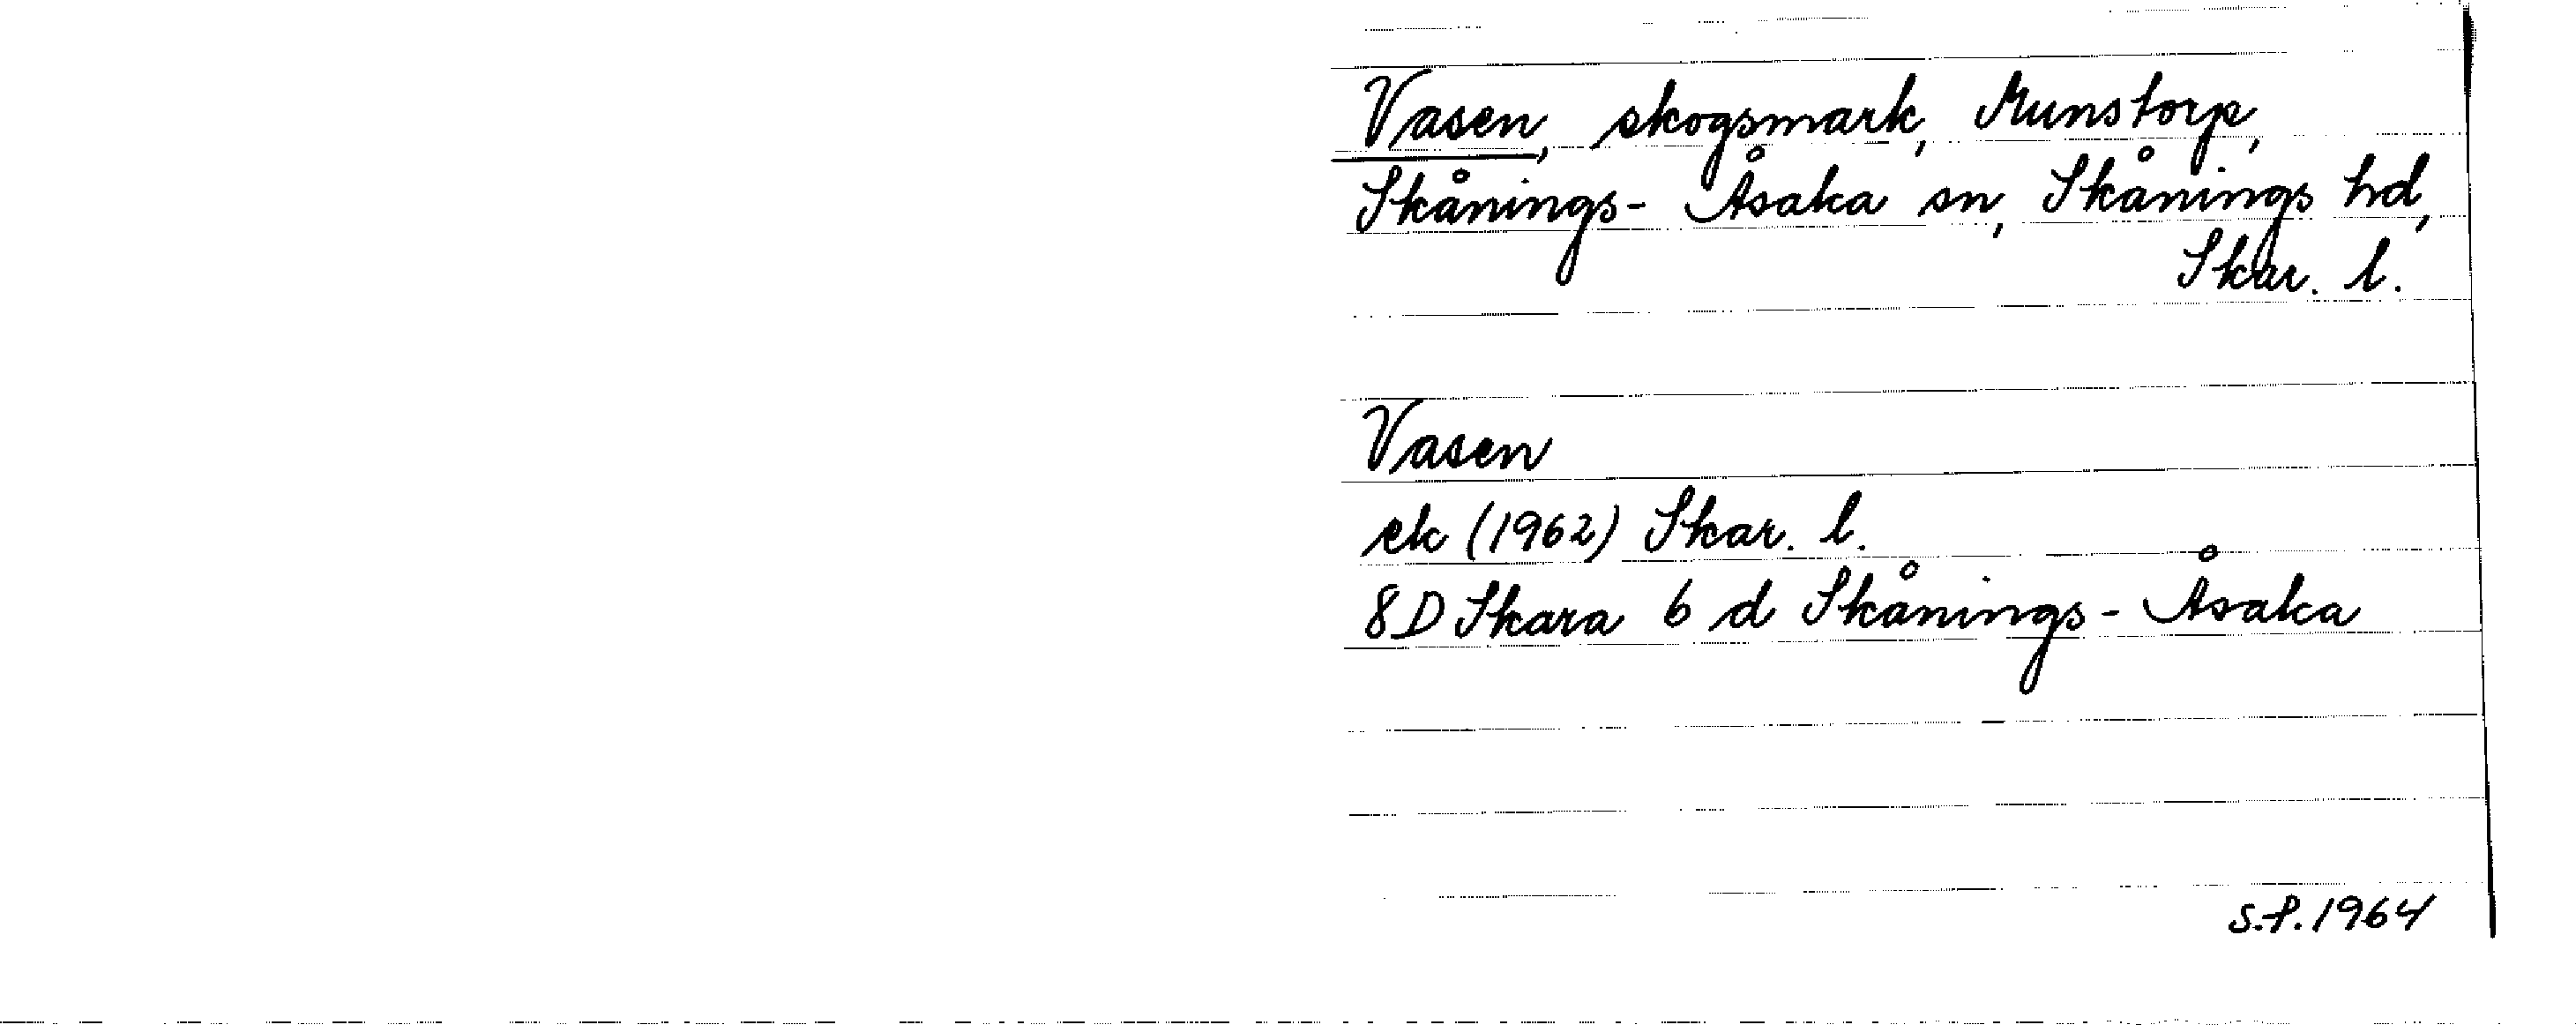 Vasen, skogsmark, Munstorp,
Skånings-Åsaka sn, Skånings hd,
Skar. l.
Vasen
ek (1962) Skar. l.
8D Skara 6 d Skånings-Åsaka
S.F. 1964